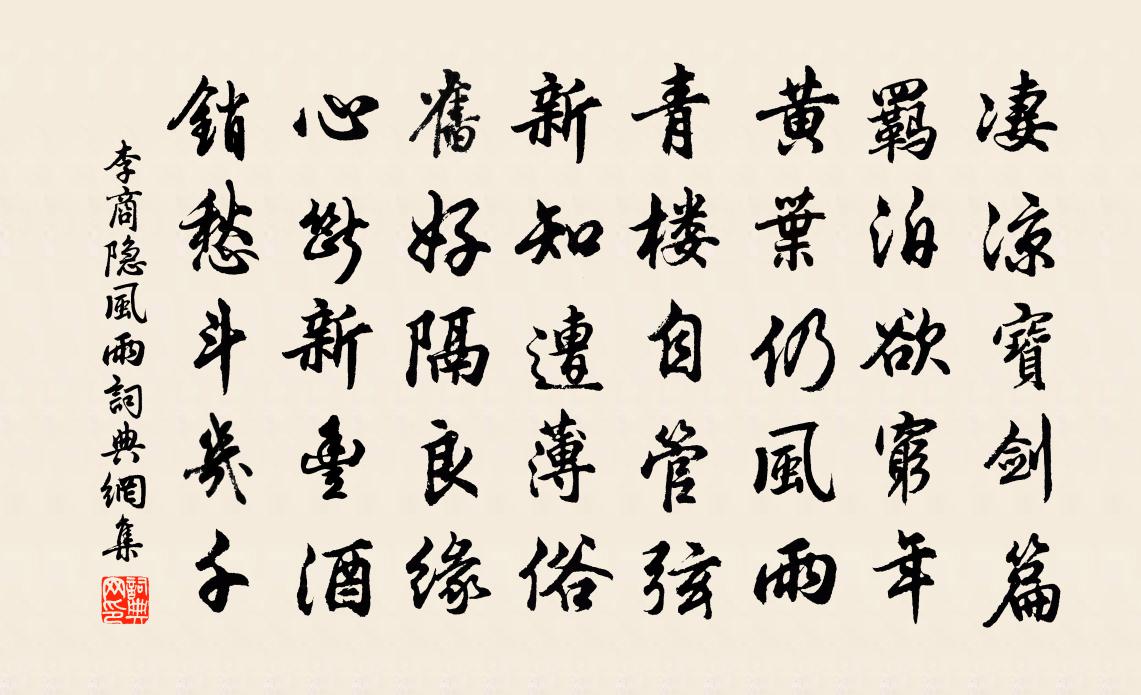 凄涼寶劍篇
羁泊欲窮年
黄葉仍風雨
青楼自管弦
新知遭薄俗
舊好隔良緣
心斷新豊酒
銷愁斗幾千
李商隐風雨詞典網集
詞典网印